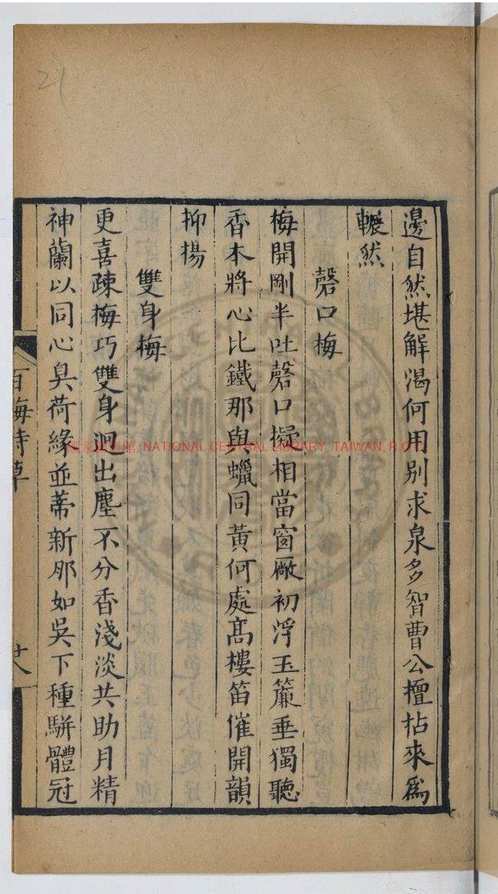 邊自然堪解渴何用別求泉多智曹公擅拈來爲
輾然
磬口梅
梅開剛半吐磬口擬相當窗厰初浮玉簾垂獨聽
香本將心比鐵那與蠟同黃何處高樓笛催開韻
抑揚
雙身梅
更喜疎梅巧雙身迥出塵不分香淺淡共助月精
神蘭以同心臭荷緣並蒂新那如吳下種駢體冠
百梅詩草
廿八
21
NATIONAL CENTRAL LIBRARY, TAIWAN, R.O.C